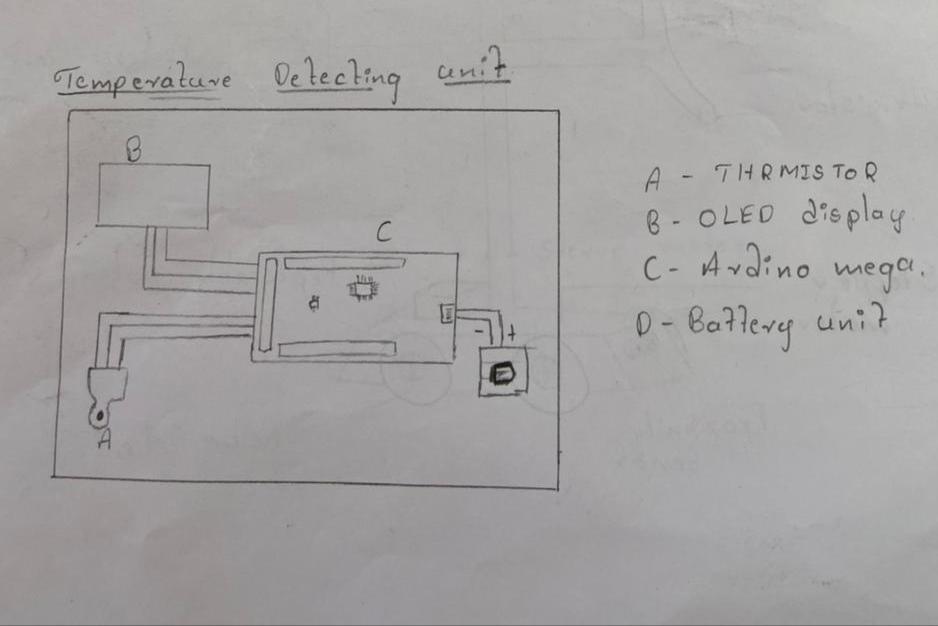 Temperature Detecting unit
B
C
- +
D
A
A - THRMISTOR
B - OLED display
C - Ardino mega.
D - Battery unit